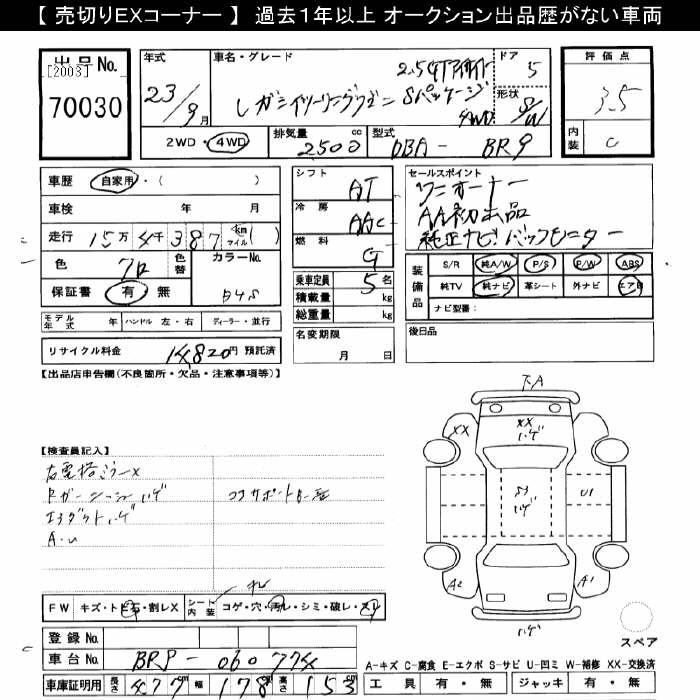 【 売切りEXコーナー 】 過去１年以上 オークション出品歴がない車両
出品No.
[2003]
70030
年式
23/9月
車名・グレード
2.5GTアイサイト
レガシィツーリングワゴン Sパッケージ
4WD
ドア
5
形状
S/W
評価点
3.5
内装
C
2WD・4WD
排気量
2500 cc
型式
DBA - BR9
車歴 自家用・( )
車検 年 月
走行 15万4千387 km マイル ( )
色 クロ
色替
カラーNo.
D4S
保証書 有・無
シフト AT
冷房 AAC
燃料 G
乗車定員 5 名
積載量 kg
総重量 kg
セールスポイント
ワンオーナー
AA初出品
純正ナビ バックモニター
装備品
S/R 純A/W P/S P/W ABS
純TV 純ナビ 革シート 外ナビ エアB
ナビ型番:
モデル年式 年 ハンドル 左・右 ディーラー・並行
リサイクル料金 14820円 預託済
名変期限
月 日
後日品
【出品店申告欄(不良箇所・欠品・注意事項等)】
下A
XX
XX
ハゲ
ハゲ
U1
A2
A1
ハゲ
【検査員記入】
右電格ミラーX
ハゲ
コアサポート
エアダクトハゲ
A・U
FW キズ・トビ石・割レX
シート内装 コゲ・穴・汚レ・シミ・破レ・スレ
スペア
登録No.
車台No. BR9 - 060774
車庫証明用 長さ 477 cm 幅 178 cm 高さ 153 cm
A-キズ C-腐食 E-エクボ S-サビ U-凹ミ W-補修 XX-交換済
工具 有・無 ジャッキ 有・無